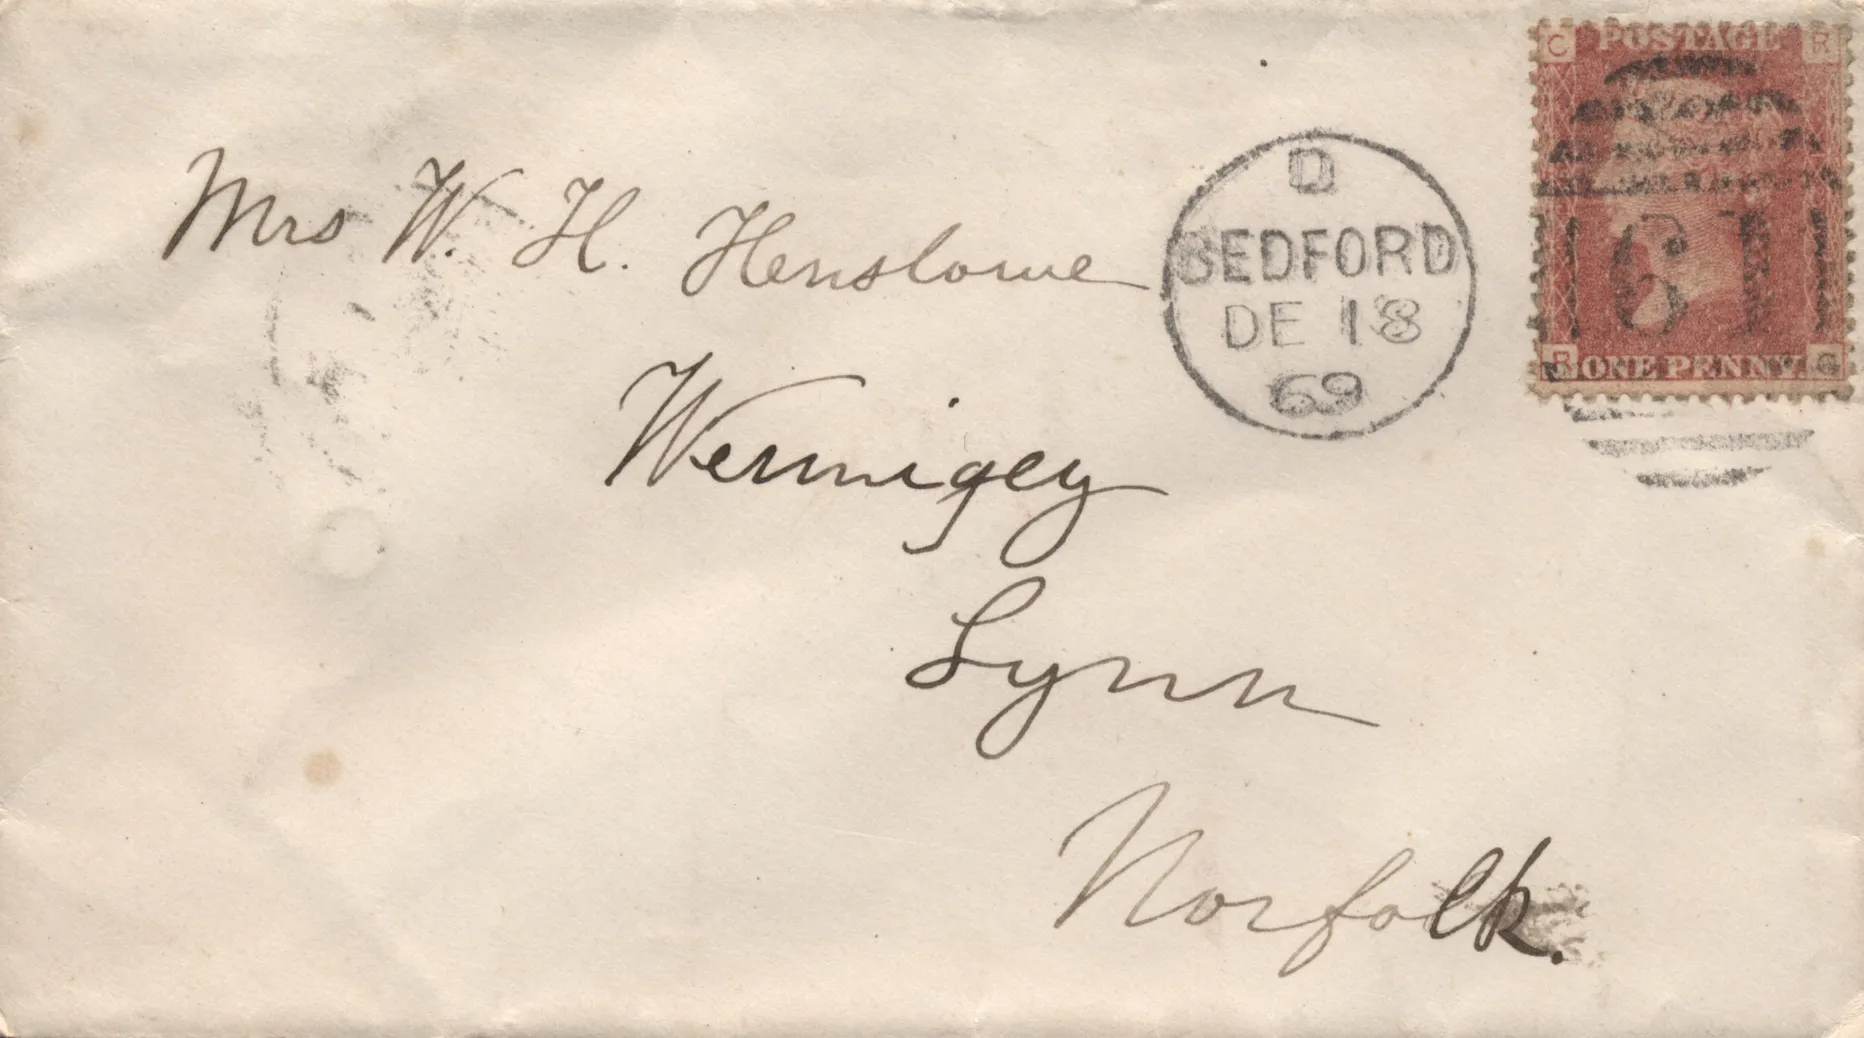 C POSTAGE R
Mrs W. H. Henslowe
D
BEDFORD
DE 18
69
61
R ONE PENNY C
Wermigey
Lynn
Norfolk.